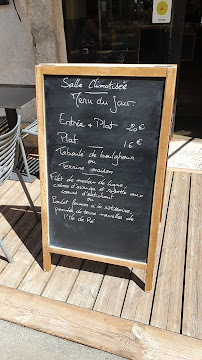 Salle Climatisée
Menu du Jour
Entrée + Plat 20€
Plat 16€
Taboulé de boulghour
ou
Terrine maison
Filet de merlan de ligne,
crème d'asperge et
ou
Poulet fermier à la
pomme de terre nouvelles de
l'Île de Ré